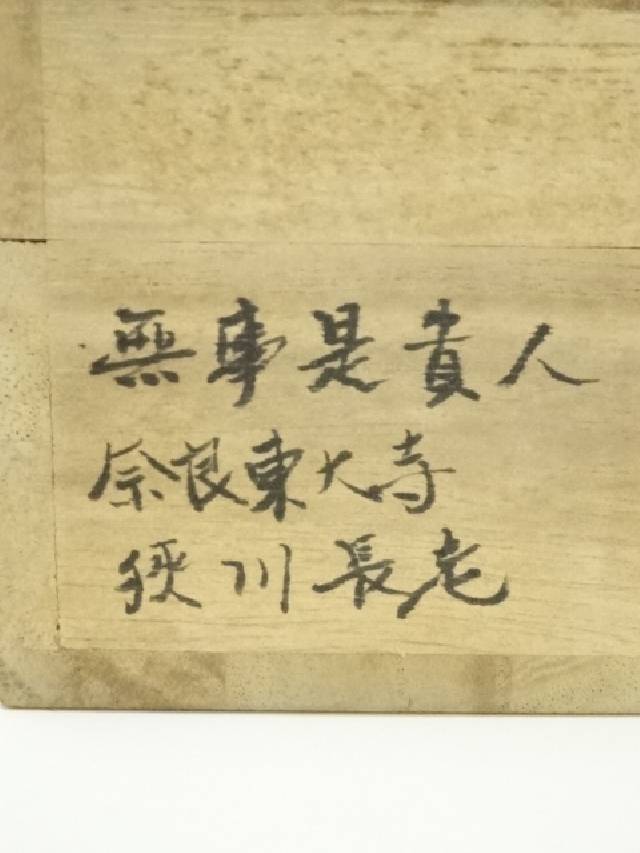 無事是貴人
奈良東大寺
狹川長老